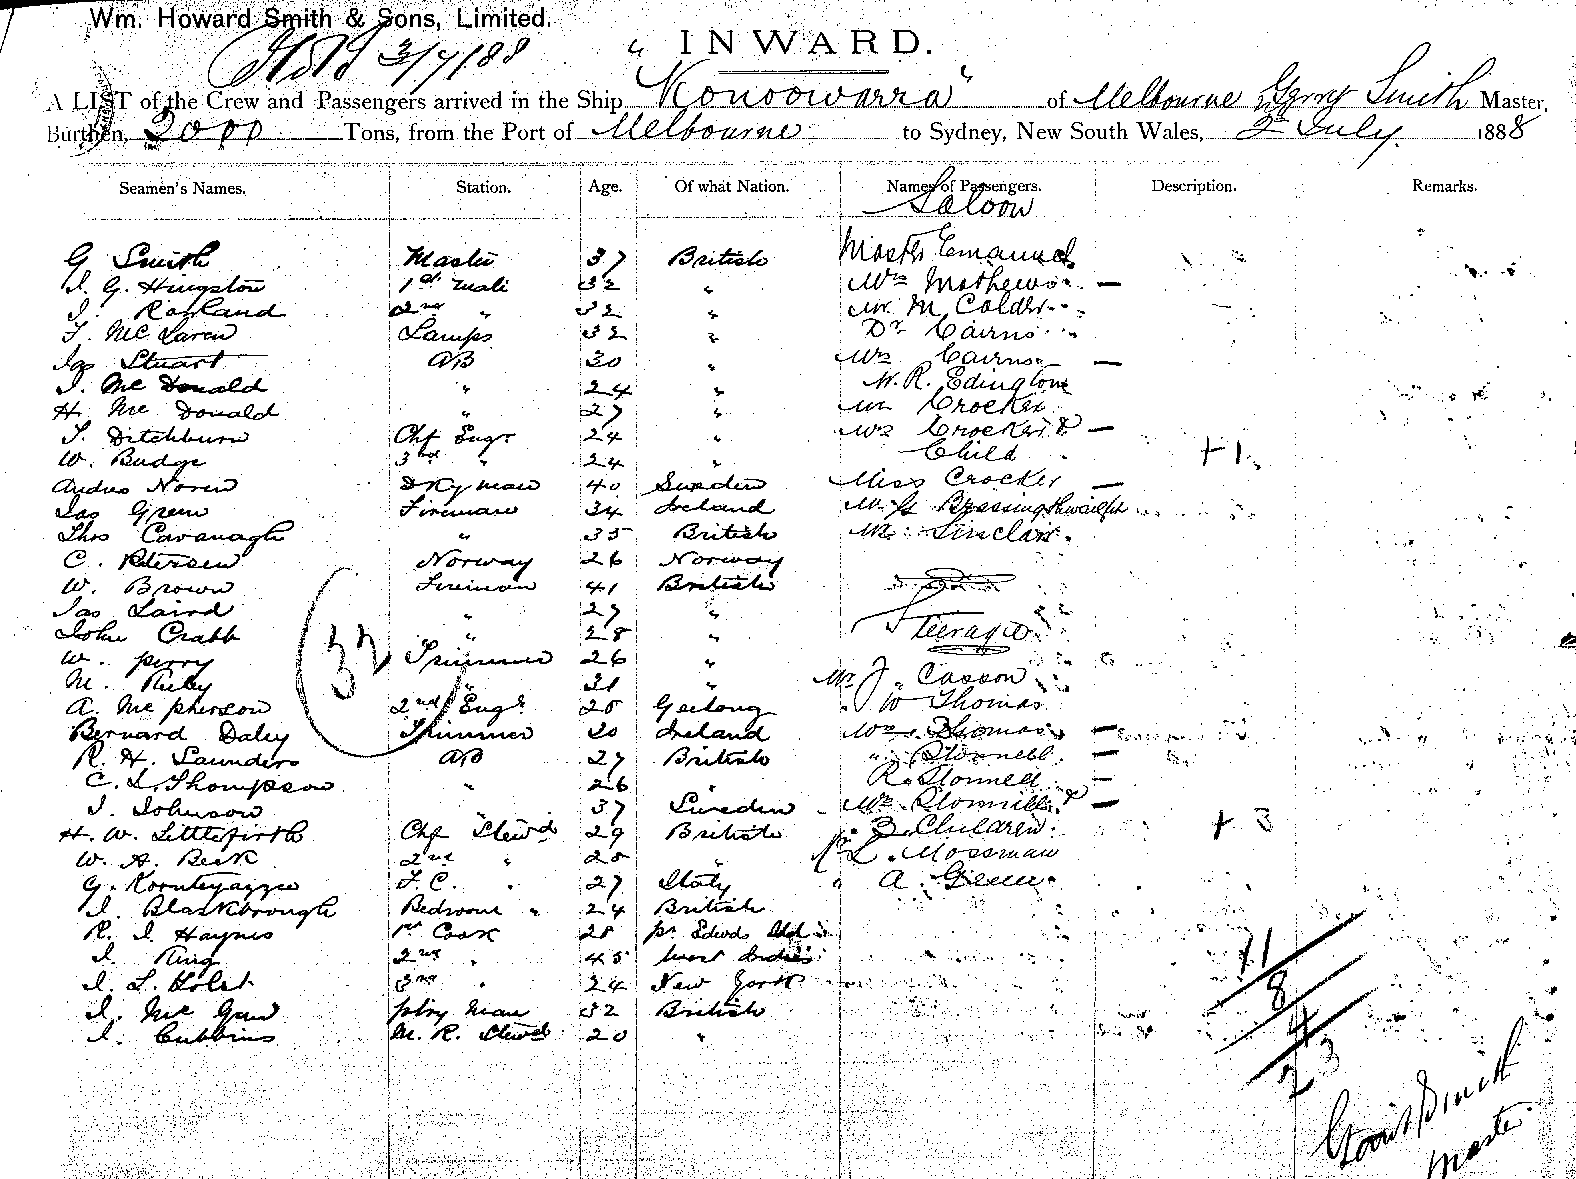 Wm. Howard Smith & Sons, Limited.
3/7/88
INWARD.
A LIST of the Crew and Passengers arrived in the Ship "Konoowarra" of Melbourne Smith Master,
Burthen, 2000 Tons, from the Port of Melbourne to Sydney, New South Wales, 2nd July 1888
Seamen's Names. Station. Age. Of what Nation. Names of Passengers. Description. Remarks.
Saloon
G Smith Master 37 British Mastr Emanuel
J. G. Hingston 1st Mate 32 " Mrs Mathews —
J. 2nd " 32 " Mr M. Calder
J. McLaren Lamps 32 " Dr Cairns
Jas Stuart AB 30 " Mrs Cairns —
J. McDonald " 24 " W. R. Edington
H. McDonald " 27 " Mr Crocker
J. Ditchburn Chf Engr 24 " Mrs Crocker & —
W. Budge 3rd " 24 " Child +1
Andreo Noren Dkyman 40 Sweden Miss Crocker —
Jas Green Fireman 34 Ireland
Thos Cavanagh " 35 British Mr Sinclair
C. Petersen Norway 26 Norway
W. Brown Fireman 41 British
Jas Laird " 27 "
John Crabb " 28 " Steerage
W. Perry Trimmer 26 "
M. Ruby " 31 " Mr J. Casson
A. McPherson 2nd Engr 28 Geelong " W Thomas
Bernard Daley Trimmer 20 Ireland Mrs Thomas —
R. H. Saunders AB 27 British " —
C. L. Thompson " 26 " R. —
J. Johnson 37 Sweden Mrs & —
H. W. Littlefirth Chf Stewd 29 British 3 Children + 3
W. A. Beck 2nd " 28 " Mr L. Mossman
G. F. C. " 27 Italy " A. Green
J. Blackbrough Bedroom " 24 British
R. J. Haynes 1st Cook 28 Pr Edwds Ild
J. King 2nd " 45 West Indies
J. L. Holst 3rd " 24 New York
J. McGaw Ptry Man 32 British
J. Cubbins M. R. Stewd 20 "
32
11
8
4
23
Smith
Master